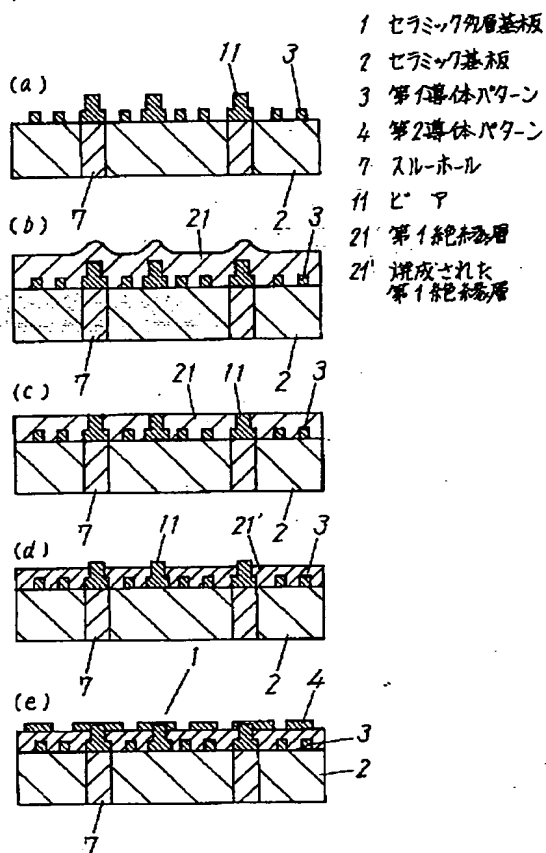 1 セラミック多層基板
2 セラミック基板
3 第1導体パターン
4 第2導体パターン
7 スルーホール
11 ビア
21 第1絶縁層
21' 焼成された
第1絶縁層
(a)
11
3
7
2
(b)
21
3
7
2
(c)
21
11
3
7
2
(d)
11
21'
3
7
2
(e)
1
4
3
2
7